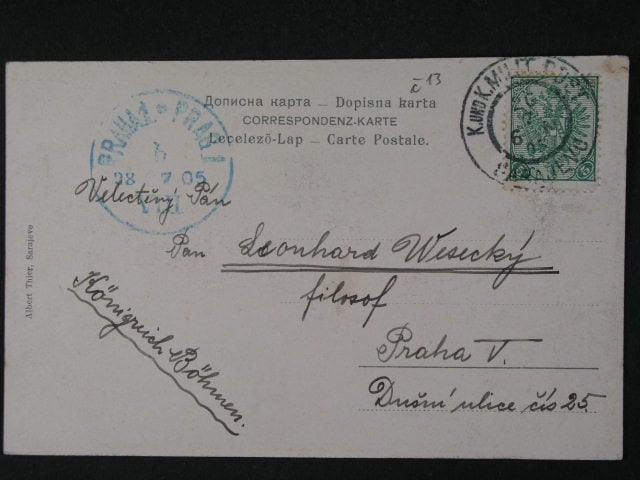 č 13
Дописна карта — Dopisna karta
CORRESPONDENZ-KARTE
Levelező-Lap — Carte Postale.
PRAHA 1 * PRAG 1
28 7 05
VIII
K. UND K. MILIT. POST
SARAJEVO
5
Velectěný Pán
Pan Leonhard Wesecký
filosof
Praha V.
Dušní ulice čís 25.
Königreich
Böhmen.
Albert Thier, Sarajevo